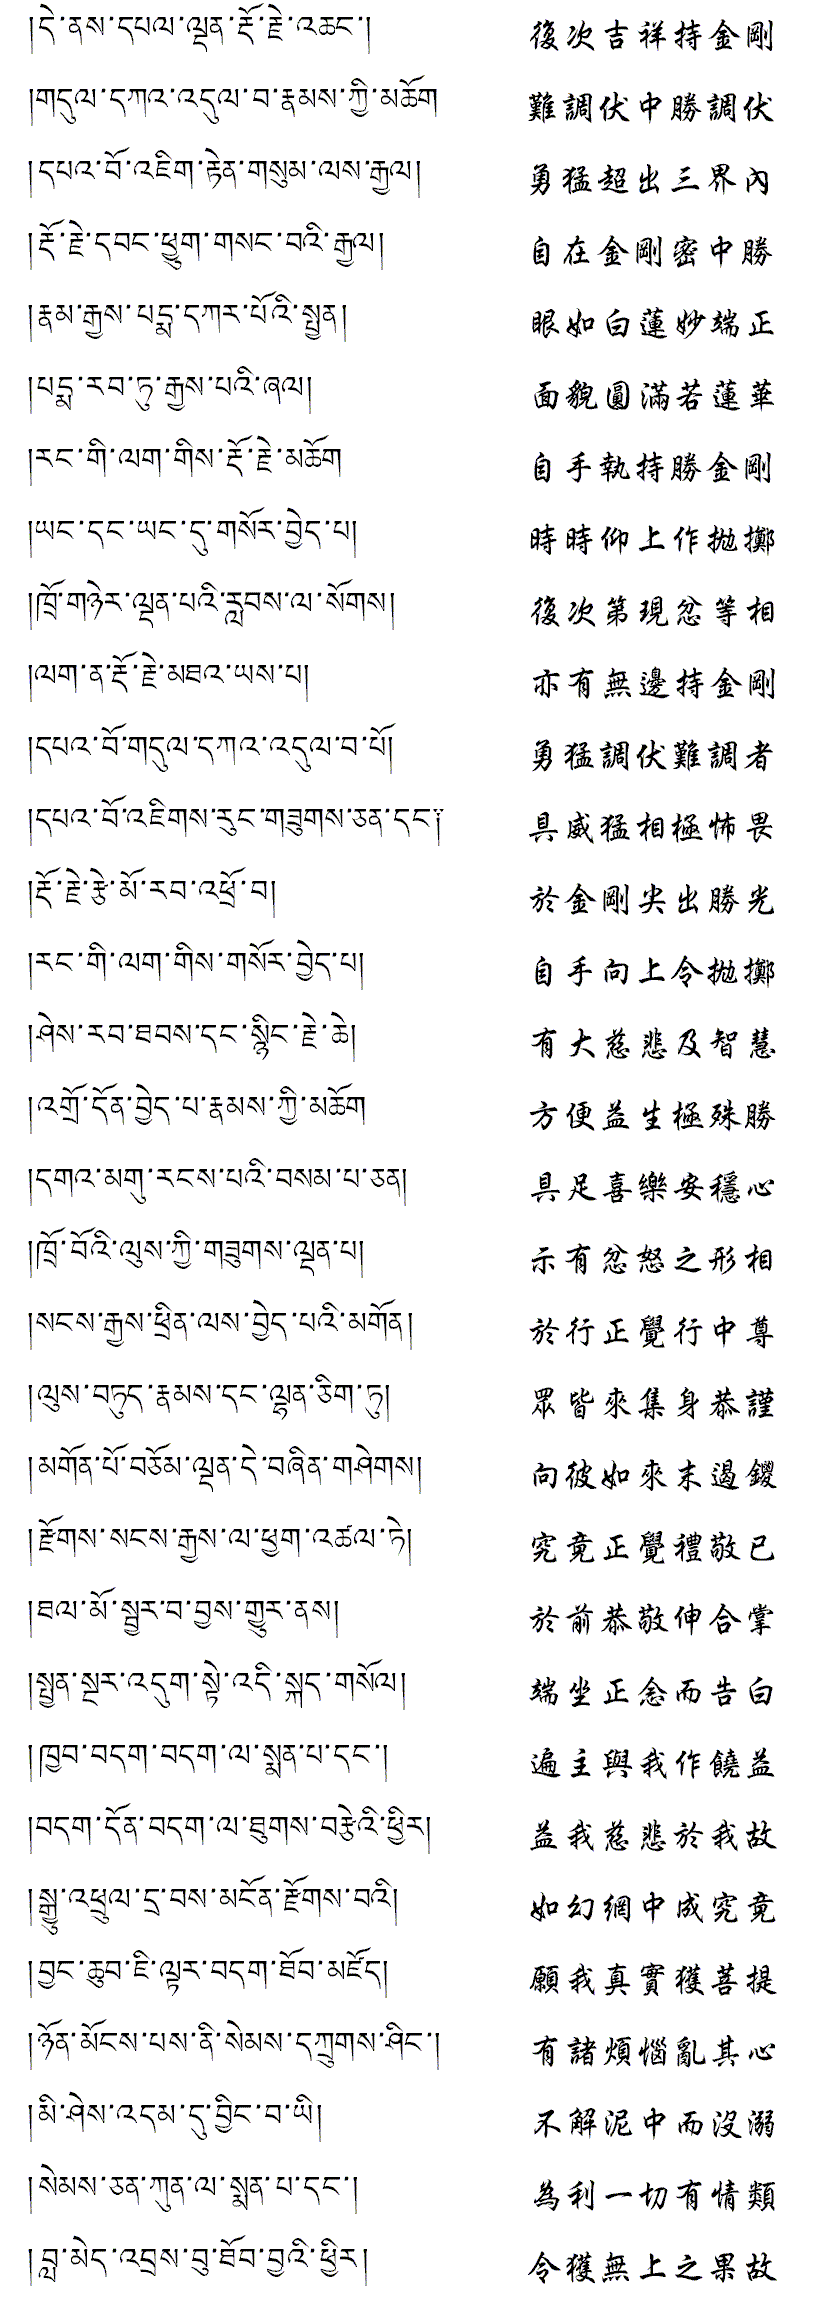 །དེ་ནས་དཔལ་ལྡན་རྡོ་རྗེ་འཆང་། 復次吉祥持金剛
།གདུལ་དཀའ་འདུལ་བ་རྣམས་ཀྱི་མཆོག 難調伏中勝調伏
།དཔའ་བོ་འཇིག་རྟེན་གསུམ་ལས་རྒྱལ། 勇猛超出三界內
།རྡོ་རྗེ་དབང་ཕྱུག་གསང་བའི་རྒྱལ། 自在金剛密中勝
།རྣམ་རྒྱས་པདྨ་དཀར་པོའི་སྤྱན། 眼如白蓮妙端正
།པདྨ་རབ་ཏུ་རྒྱས་པའི་ཞལ། 面貌圓滿若蓮華
།རང་གི་ལག་གིས་རྡོ་རྗེ་མཆོག 自手執持勝金剛
།ཡང་དང་ཡང་དུ་གསོར་བྱེད་པ། 時時仰上作拋擲
།ཁྲོ་གཉེར་ལྡན་པའི་རླབས་ལ་སོགས། 復次第現忿等相
།ལག་ན་རྡོ་རྗེ་མཐའ་ཡས་པ། 亦有無邊持金剛
།དཔའ་བོ་གདུལ་དཀའ་འདུལ་བ་པོ། 勇猛調伏難調者
།དཔའ་བོ་འཇིགས་རུང་གཟུགས་ཅན་དང་༑ 具威猛相極怖畏
།རྡོ་རྗེ་རྩེ་མོ་རབ་འཕྲོ་བ། 於金剛尖出勝光
།རང་གི་ལག་གིས་གསོར་བྱེད་པ། 自手向上令拋擲
།ཤེས་རབ་ཐབས་དང་སྙིང་རྗེ་ཆེ། 有大慈悲及智慧
།འགྲོ་དོན་བྱེད་པ་རྣམས་ཀྱི་མཆོག 方便益生極殊勝
།དགའ་མགུ་རངས་པའི་བསམ་པ་ཅན། 具足喜樂安穩心
།ཁྲོ་བོའི་ལུས་ཀྱི་གཟུགས་ལྡན་པ། 示有忿怒之形相
།སངས་རྒྱས་ཕྲིན་ལས་བྱེད་པའི་མགོན། 於行正覺行中尊
།ལུས་བཏུད་རྣམས་དང་ལྷན་ཅིག་ཏུ། 眾皆來集身恭謹
།མགོན་པོ་བཅོམ་ལྡན་དེ་བཞིན་གཤེགས། 向彼如來末遏鑁
།རྫོགས་སངས་རྒྱས་ལ་ཕྱག་འཚལ་ཏེ། 究竟正覺禮敬已
།ཐལ་མོ་སྦྱར་བ་བྱས་གྱུར་ནས། 於前恭敬伸合掌
།སྤྱན་སྔར་འདུག་སྟེ་འདི་སྐད་གསོལ། 端坐正念而告白
།ཁྱབ་བདག་བདག་ལ་སྨན་པ་དང་། 遍主與我作饒益
།བདག་དོན་བདག་ལ་ཐུགས་བརྩེའི་ཕྱིར། 益我慈悲於我故
།སྒྱུ་འཕྲུལ་དྲ་བས་མངོན་རྫོགས་བའི། 如幻網中成究竟
།བྱང་ཆུབ་ཇི་ལྟར་བདག་ཐོབ་མཛོད། 願我真實獲菩提
།ཉོན་མོངས་པས་ནི་སེམས་དཀྲུགས་ཤིང་། 有諸煩惱亂其心
།མི་ཤེས་འདམ་དུ་བྱིང་བ་ཡི། 不解泥中而沒溺
།སེམས་ཅན་ཀུན་ལ་སྨན་པ་དང་། 為利一切有情類
།བླ་མེད་འབྲས་བུ་ཐོབ་བྱའི་ཕྱིར། 令獲無上之果故